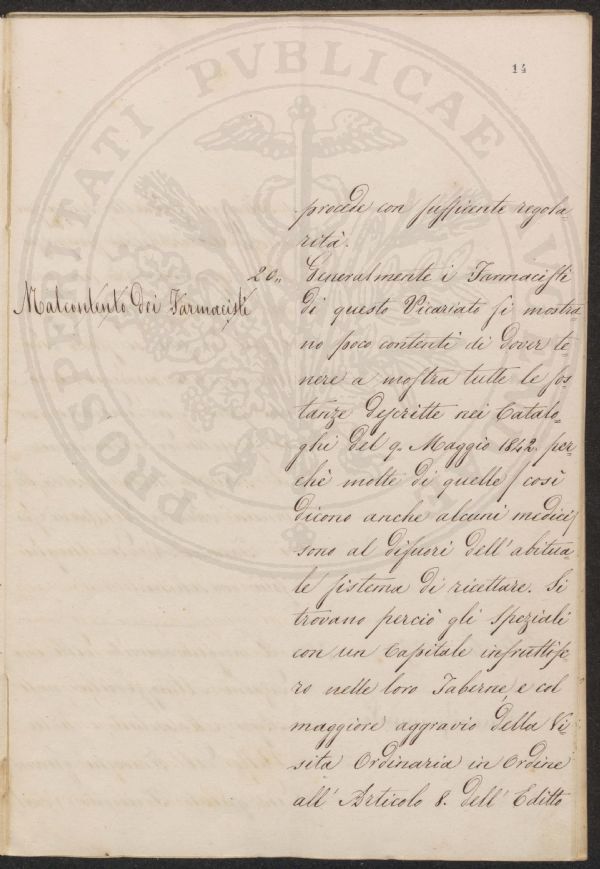 14
procede con sufficente regola-
rità.
20„ Generalmente i Farmacisti
Malcontento dei Farmacisti
di questo Vicariato si mostra-
no poco contenti di dover te-
nere a mostra tutte le sos-
tanze descritte nei Catalo-
ghi del 9. Maggio 1842. per-
chè molte di quelle / così
dicono anche alcuni medici /
sono al difuori dell' abitua-
le sistema di ricettare. Si
trovano perciò gli Speziali
con un Capitale infruttife-
ro nelle loro Taberne, e col
maggiore aggravio della Vi-
sita Ordinaria in Ordine
all' Articolo 8. dell' Editto
PROSPERITATI PVBLICAE